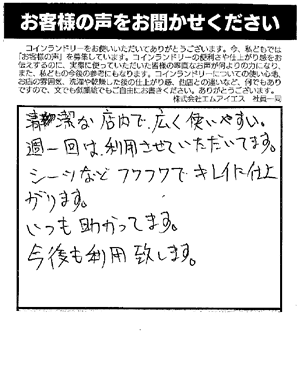 お客様の声をお聞かせください
コインランドリーをお使いいただいてありがとうございます。今、私どもでは
「お客様の声」を募集しています。コインランドリーの便利さや仕上がり感をお
伝えするのに、実際に使っていただいた皆様の率直なお声が何よりの力になり、
また、私どもの今後の参考にもなります。コインランドリーについての使い心地、
お店の雰囲気、洗濯や乾燥した後の仕上がり感、他店との違いなど、何でもあり
ですので、文でも似顔絵でもご自由にお書きください。ありがとうございます。
株式会社エムアイエス 社員一同
清潔な店内で、広く使いやすい。
週一回は利用させていただいてます。
シーツなどフワフワでキレイに仕上
がります。
いつも助かってます。
今後も利用致します。